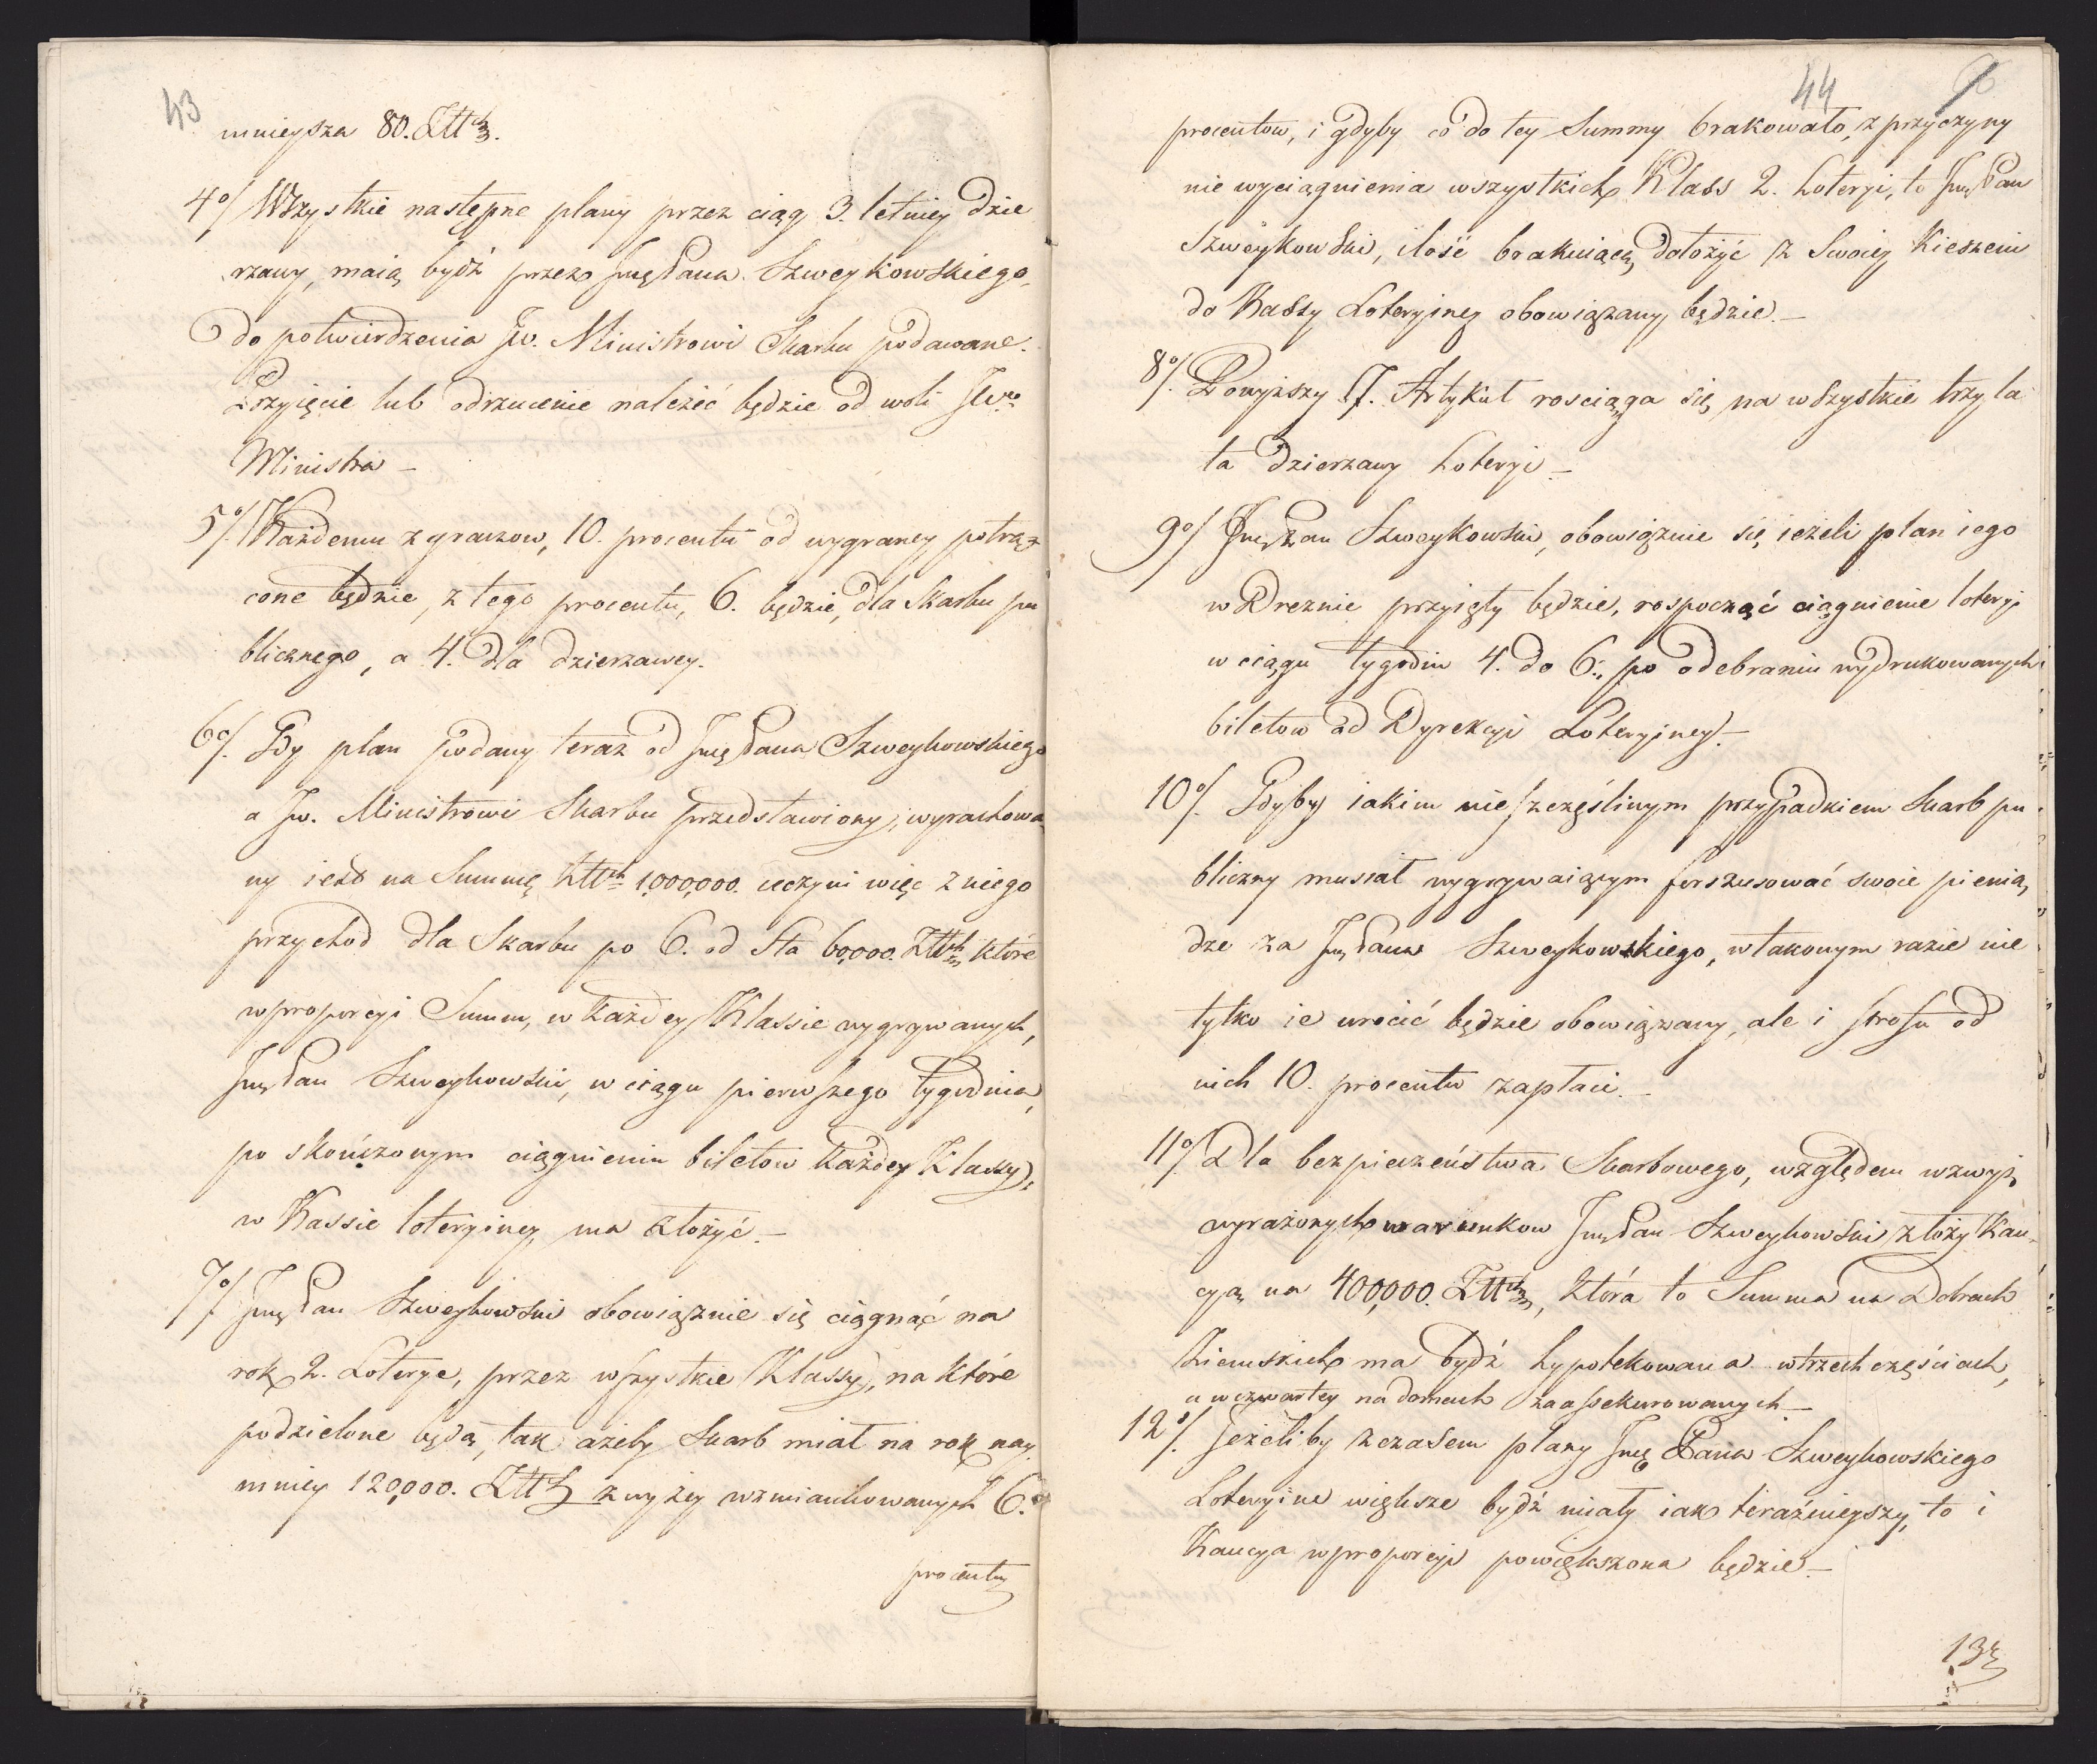 43
mnieysza 80. Złłch.
4o/ Wszystkie następne plany przez ciąg 3. letniey dzie
rzawy, maią bydź przez Jmę Pana Szweykowskiego,
do potwierdzenia Jw. Ministrowi Skarbu podawane.
Przyięcie lub odrzucenie należéć będzie od woli JWo
Ministra —
5o/. Każdemu z graczow, 10. procentu od wygraney potrą-
cone będzie, z tego procentu, 6. będzie, dla Skarbu pu
blicznego, a 4. dla dzierzawcy.
6o/. Gdy plan podany teraz od Jmę Pana Szweykowskiego
a Jw. Ministrowi Skarbu przedstawiony, wyrachowa
ny iest na Summę Złłch 1,000,000. uczyni więc z niego
przychod dla Skarbu po 6. od Sta 60,000. Złłch które
w proporcyi Summ, w każdey Klassie wygrywanych,
Jmę Pan Szweykowski, w ciągu pierwszego tygodnia,
po skończonym ciągnieniu biletow każdey Klassy,
w Kassie loteryiney, ma złożyć. —
7o/. Jmę Pan Szweykowski obowiąznie się ciągnąć na
rok 2. Loterye, przez wszystkie Klassy, na które
podzielone będą, tak ażeby Skarb miał na rok nay
mniey 120,000. Złłch z wyżey wzmiankowanych 6.
procentu
44
procentow, i gdyby co do tey Summy brakowało, z przyczyny
nie wyciągnienia wszystkich Klass 2. Loteryi, to Jmę Pan
Szweykowski, ilość brakuiącą, dołożyć z Swoiey Kieszeni
do Kassy Loteryiney obowiązany będzie. —
8o/. Powyższy 7. Artykuł rosciąga się na wszystkie trzy la
ta dzierzawy Loteryi —
9o/ Jmę Pan Szweykowski, obowiąznie się ieżeli plan iego
w Dreznie przyięty będzie, rospocząć ciągnienie loteryi
w ciągu tygodni 4. do 6., po odebraniu wydrukowanych
biletow od Dyrekcyi Loteryiney. —
10o/. Gdyby iakim nieszczęśliwym przypadkiem Skarb pu
bliczny musiał wygrywaiącym forszusować swoie pienią,
dze za Jmę Pana Szweykowskiego, w takowym razie nie
tylko ie wrocić będzie obowiązany, ale i strofu od
nich 10. procentu zapłaci. —
11o/ Dla bezpieczeństwa Skarbowego, względem wzwyż,
wyrażonych warunkow Jmę Pan Szweykowski złoży Kau-
cyą na 400,000. Złłch, która to Summa na Dobrach
Ziemskich ma bydź hypotekowana w trzech częściach,
a w czwartey na domach zaassekurowanych —
12o/. Jeżeliby z czasem plany Jmę Pana Szweykowskiego
Loteryine większe bydź miały iak teraźnieyszy, to i
Kaucya w proporcyi powiększona będzie —
13